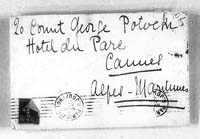 To Count George Potocki
Hotel du Parc
Cannes
Alpes-Maritimes